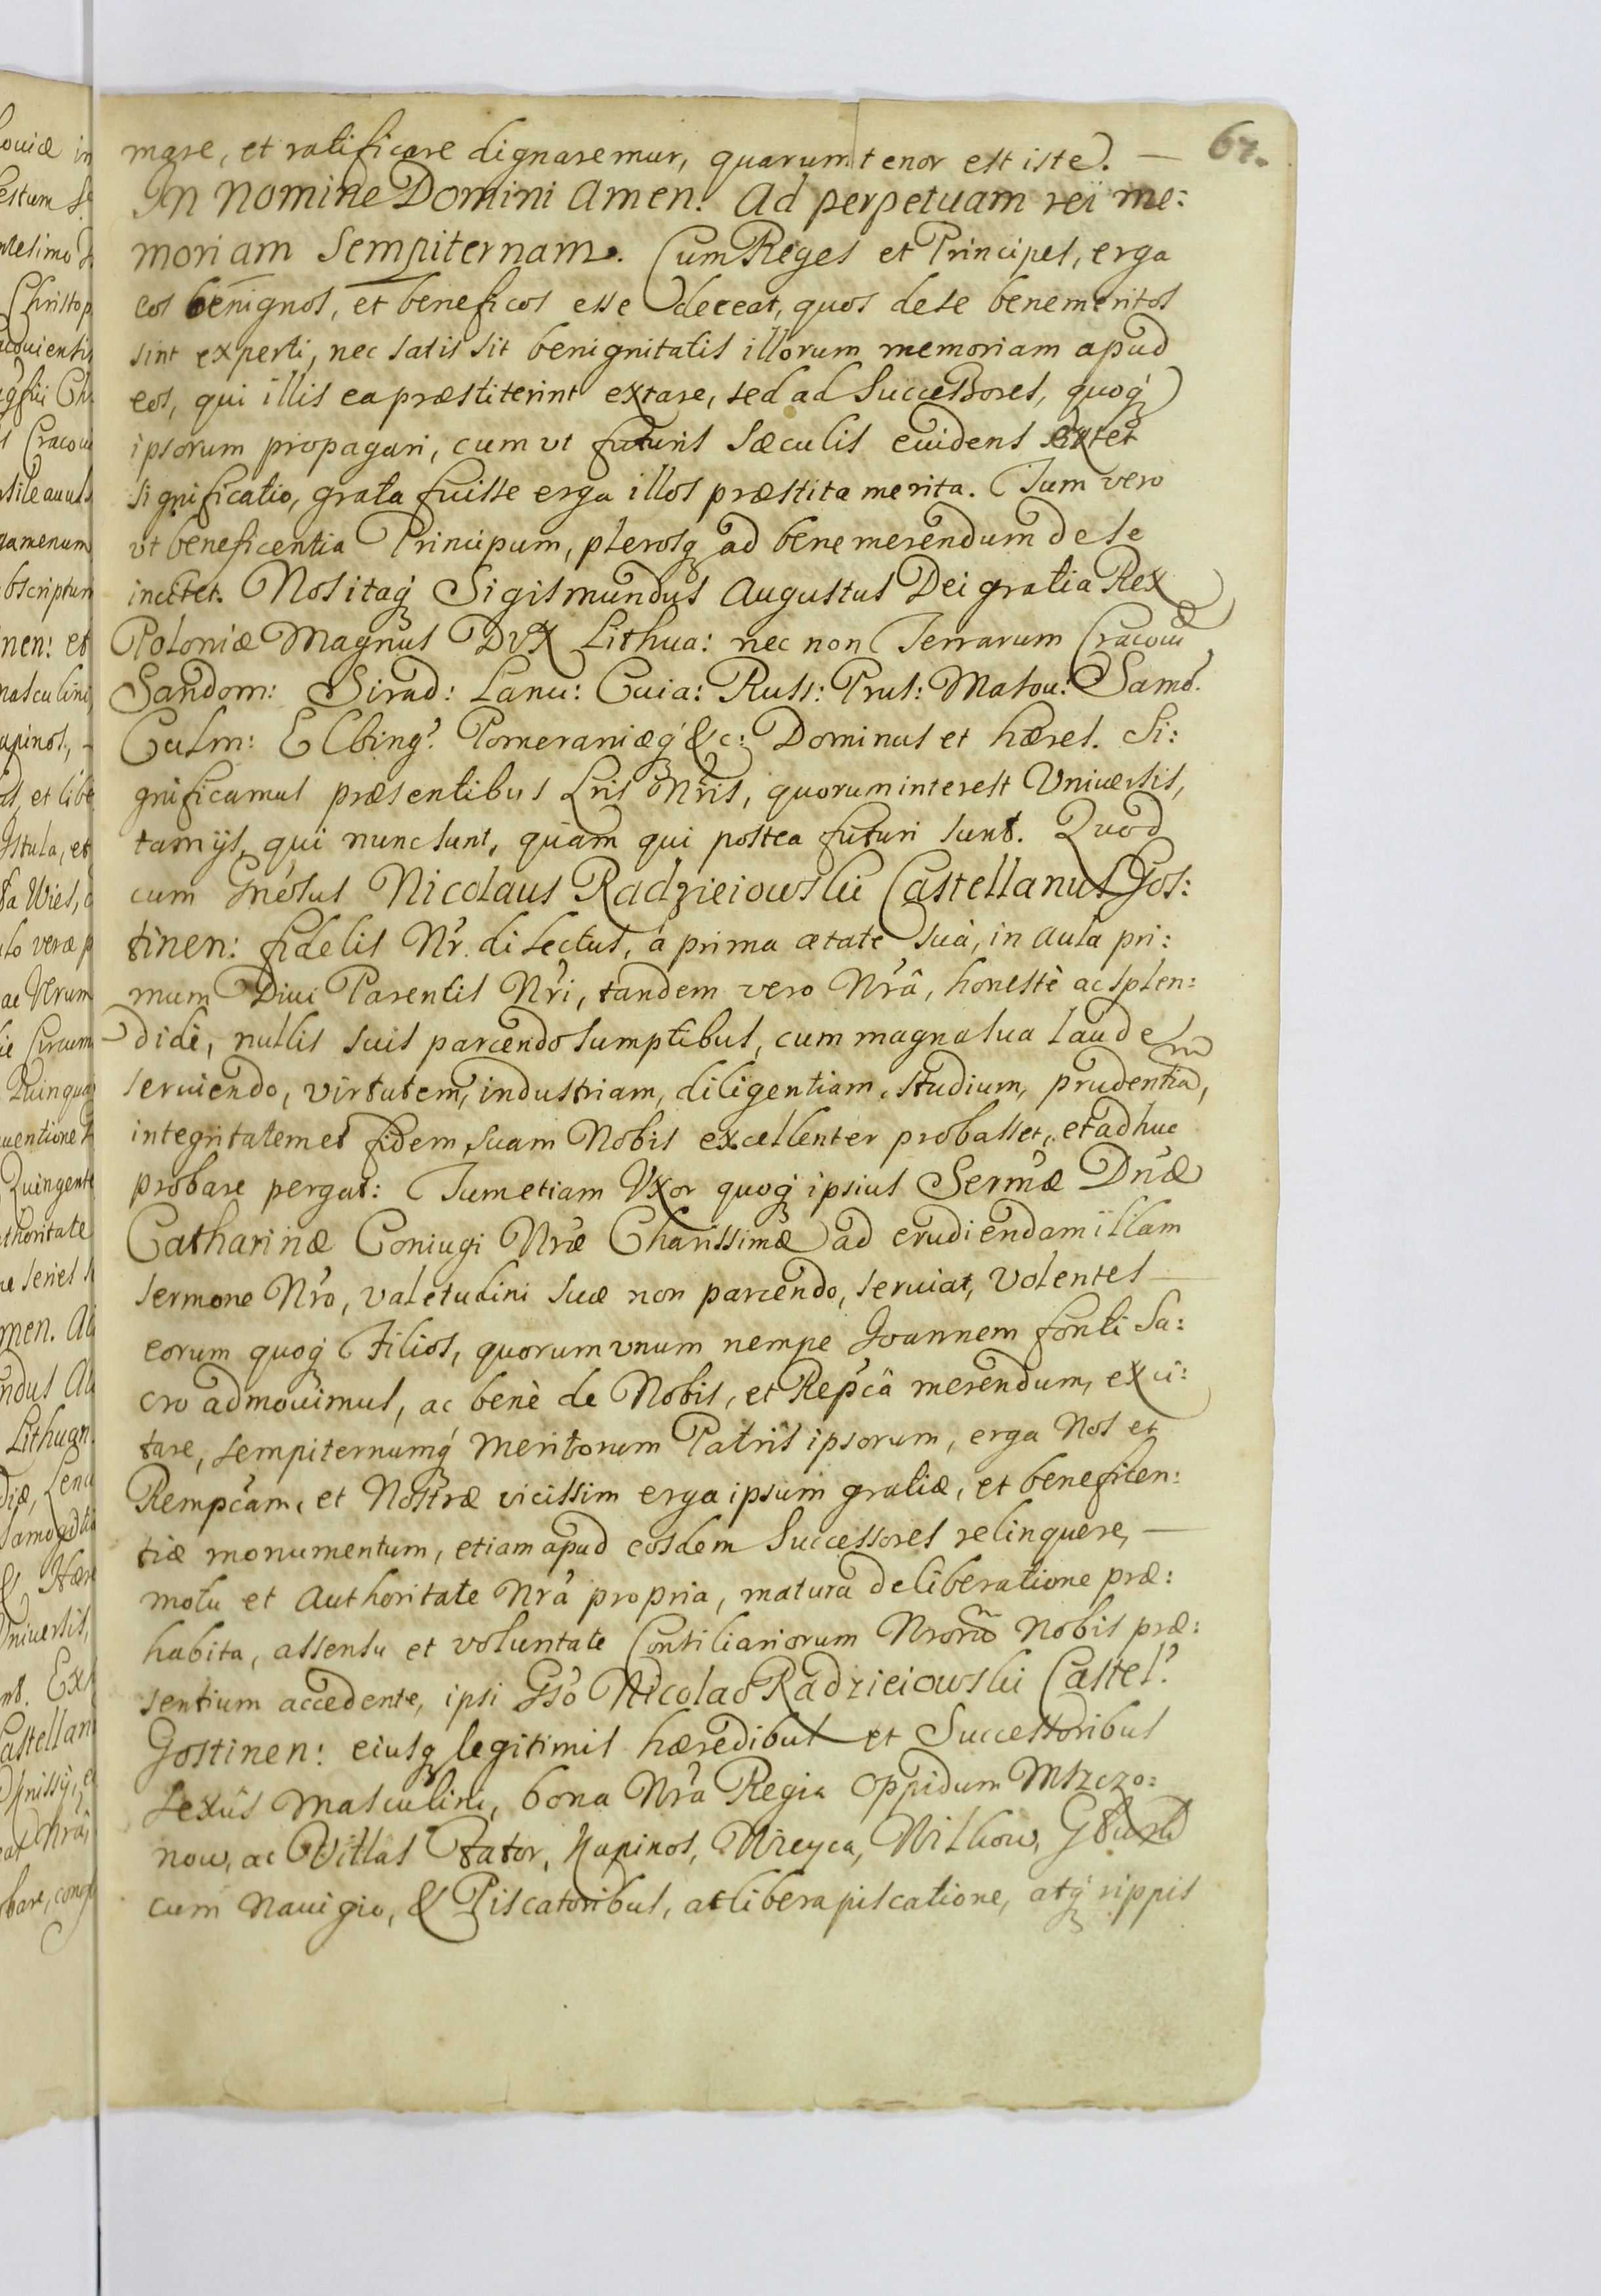 67.
mare, et ratificare dignaremur, quarum tenor est iste. —
In Nomine Domini Amen. Ad perpetuam rei me:
moriam Sempiternam. Cum Reges et Principes, erga
eos benignos, et beneficos esse deceat, quos de se benemeritos
sint experti, nec satis sit benignitatis illorum memoriam apud
eos, qui illis ea præstiterint extare, sed ad Successores, quoq́
ipsorum propagari, cum vt futuris sæculis euidens extet
significatio, grata fuisse erga illos præstita merita. Tum vero
vt beneficentia Principum, plerosq́ ad bene merendum de se
incitet. Nos itaq́ Sigismundus Augustus Dei gratia Rex
Poloniæ Magnus Dux Lithua: nec non Terrarum Cracouiæ
Sandom: Sirad: Lanci: Cuia: Russ: Prus: Masou: Samo.
Culm: Elbing. Pomeraniæq́ &c: Dominus et hæres. Si:
gnificamus præsentibus Lris Nris, quorum interest Vniuersis,
tam ijs, qui nunc sunt, quam qui postea futuri sunt. Quod
cum Gnẻosus Nicolaus Radzieiowski Castellanus Gos:
tinen: fidelis Nr. dilectus, á prima ætate suâ, in aula pri:
mum Diui Parentis Nri, tandem vero Nrâ, honestè ac splen:
didè, nullis suis parcendo sumptibus, cum magna sua laude
seruiendo, virtutem, industriam, diligentiam, studium, prudentiam,
integritatem et fidem suam Nobis excellenter probasset, et adhuc
probare pergat: Tum etiam Vxor quoq́ ipsius Sermæ Dnæ
Catharinæ Coniugi Nræ Charissimæ ad erudiendam illam
sermone Nro, valetudini suæ non parcendo, seruiat, Volentes —
eorum quoq́ Filios, quorum vnum nempe Joannem fonti Sa:
cro admouimus, ac benè de Nobis, et Repcâ merendum, exci:
tare, sempiternumq́ meritorum Patris ipsorum, erga Nos et
Rempcam, et Nostræ vicissim erga ipsum gratiæ, et beneficen:
tiæ monumentum, etiam apud eosdem Successores relinquere, —
motu et Authoritate Nrâ propria, matura deliberatione præ:
habita, assensu et voluntate Consiliariorum Nrorum Nobis præ:
sentium accedente, ipsi Gso Nicolao Radzieiowski Castel.
Gostinen: eiusq́ legitimis hæredibus et Successoribus
sexûs masculini, bona Nra Regia Oppidum Mszczo:
now, ac Villas Tator, Kapinos, Wieyca, Wilkow, Głusk
cum nauigio, & Piscatoribus, ac libera piscatione, atq́ rippis